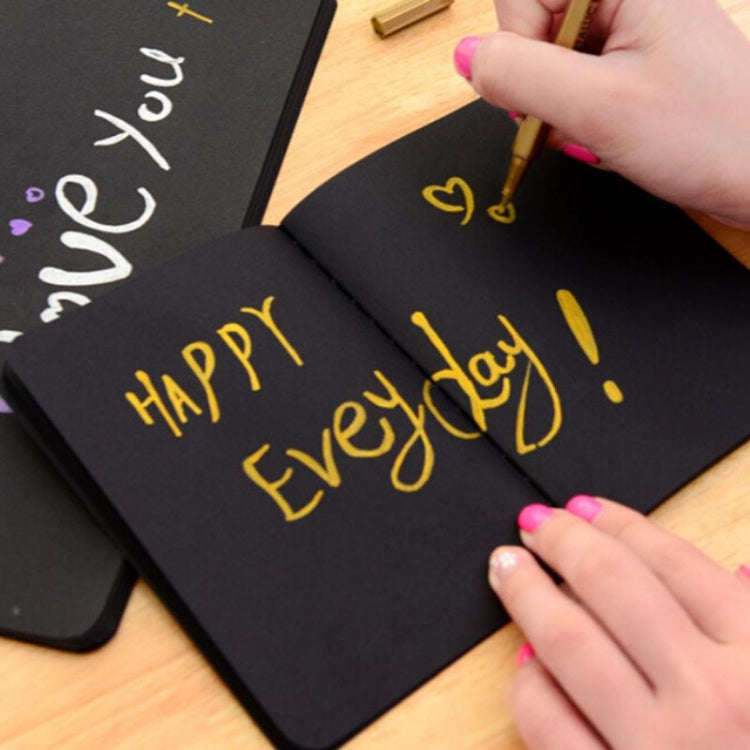 you
HAPPY
Eveyday!